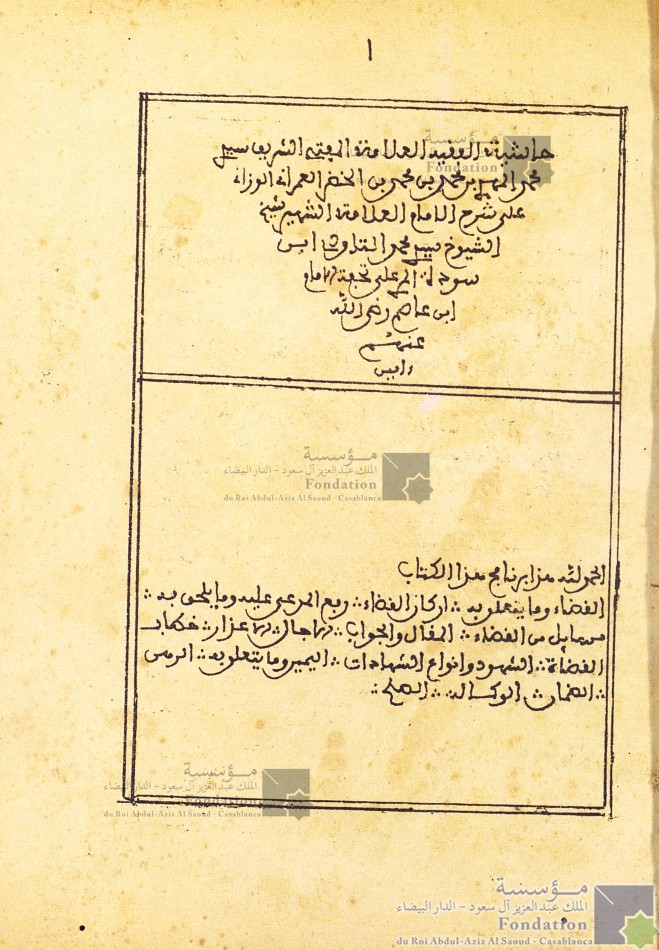 ١
حاشية الفقيه العلامة المفتي الشريف سيدي
محمد المهدي بن محمد بن محمد بن الخضر العمراني الوزاني
على شرح الامام العلامة الشهير شيخ
الشيوخ سيدي محمد التاودي ابن
سودة المري على تحفة الامام
ابن عاصم رضي الله
عنهم
ءامين
مؤسسة
الملك عبد العزيز آل سعود - الدار البيضاء
Fondation
du Roi Abdul-Aziz Al Saoud - Casablanca
الحمد لله هذا برنامج هذا الكتاب
القضاء وما يتعلق به اركان القضاء رفع المدعى عليه وما يلحق به
مسايل من القضاء المقال والجواب الاجال الاعذار خطاب
القضاة الشهود وانواع الشهادات اليمين وما يتعلق به الرهن
الضمان الوكالة الصلح
مؤسسة
الملك عبد العزيز آل سعود - الدار البيضاء
du Roi Abdul-Aziz Al Saoud - Casablanca
مؤسسة
الملك عبد العزيز آل سعود - الدار البيضاء
Fondation
du Roi Abdul-Aziz Al Saoud - Casablanca